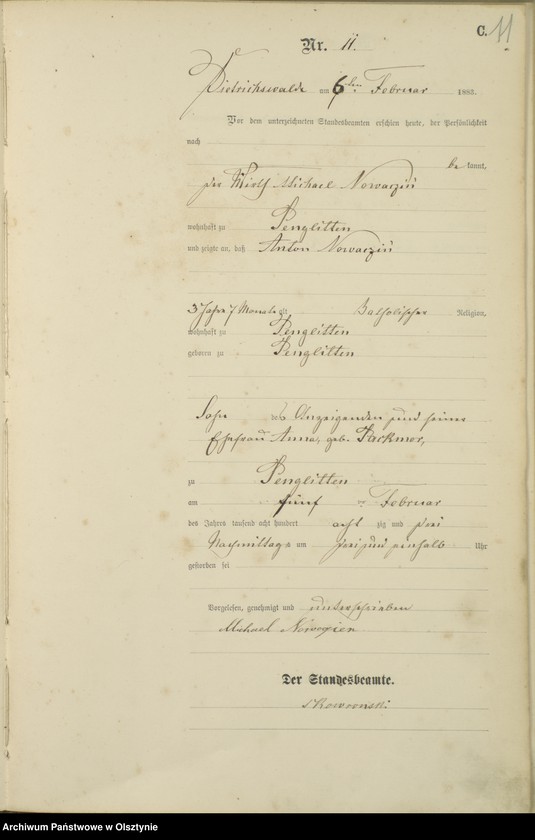 C. 11
Nr. 11.
Dietrichswalde am 6ten Februar 1883.
Vor dem unterzeichneten Standesbeamten erschien heute, der Persönlichkeit
nach
bekannt,
der Wirth Michael
wohnhaft zu Penglitten
und zeigte an, daß Anton
3 Jahre 7 Monate alt Katholischer Religion,
wohnhaft zu Penglitten
geboren zu Penglitten
Sohn des Anzeigenden und seiner
Ehefrau Anna, geb.
zu Penglitten
am fünf ten Februar
des Jahres tausend acht hundert acht zig und drei
Nachmittags um einhalb Uhr
gestorben sei
Vorgelesen, genehmigt und unterschrieben
Michael
Der Standesbeamte.
Archiwum Państwowe w Olsztynie